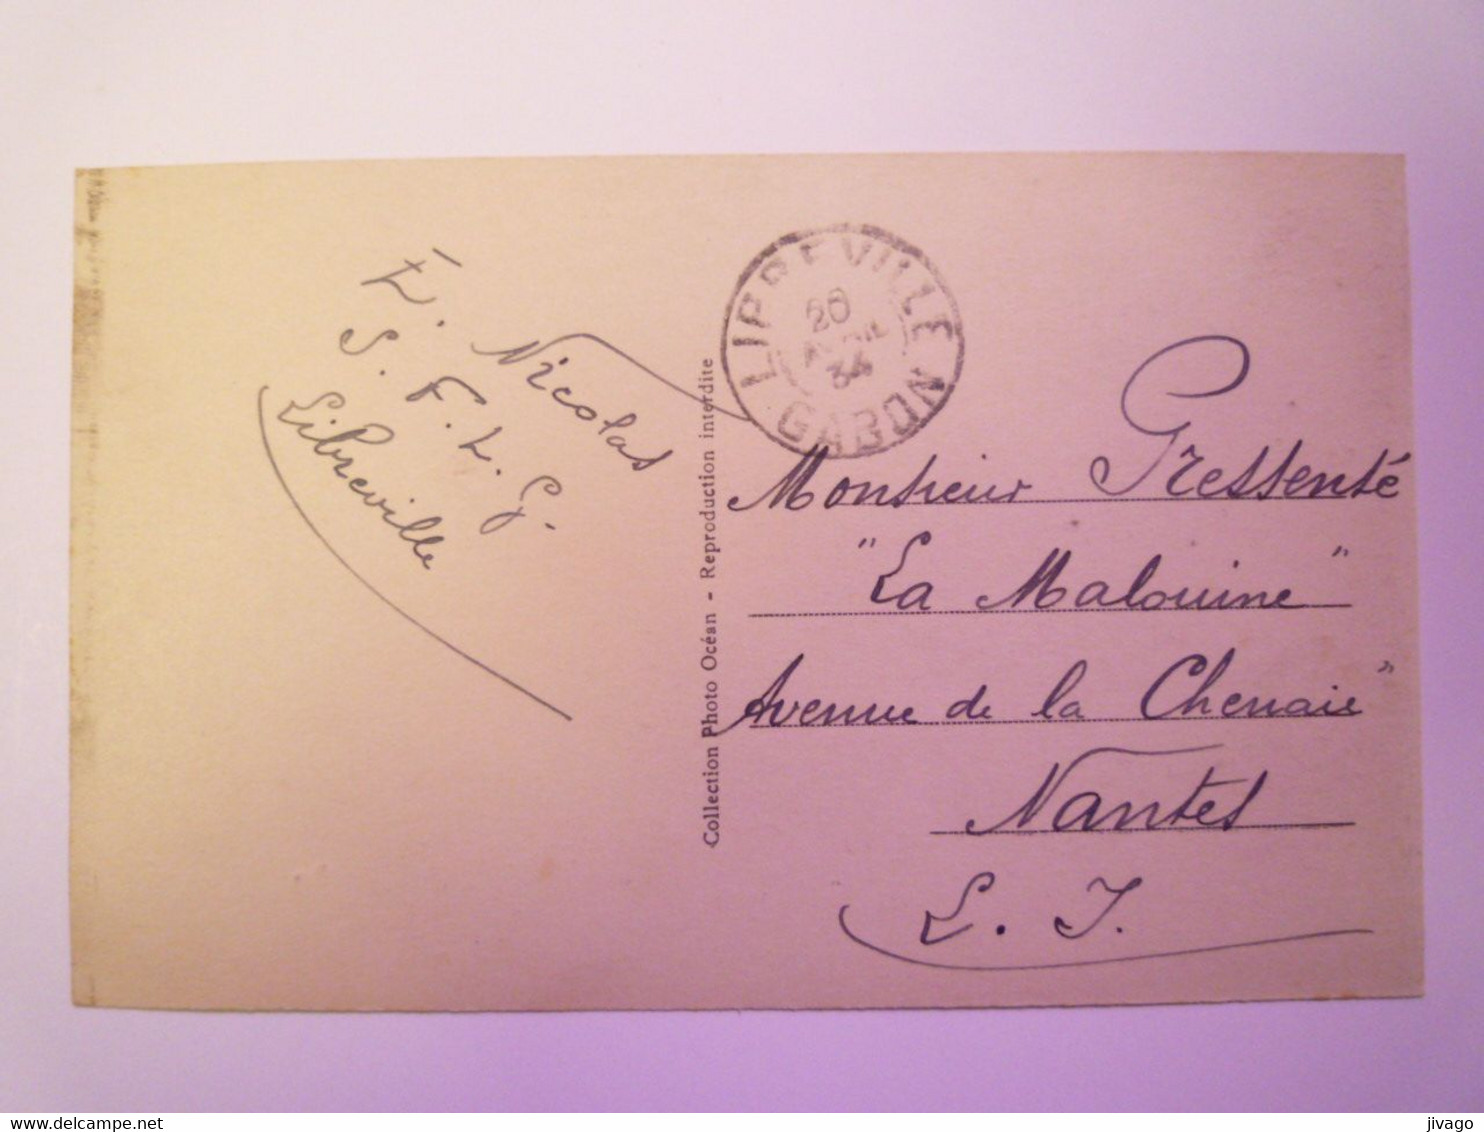 E. Nicolas
S. F. L. G.
Libreville
Collection Photo Océan - Reproduction interdite
LIBREVILLE
AVRIL
34
GABON
Monsieur Pressenté
"La Malouine"
Avenue de la Chenaie"
Nantes
L. I.
delcampe.net
jivago